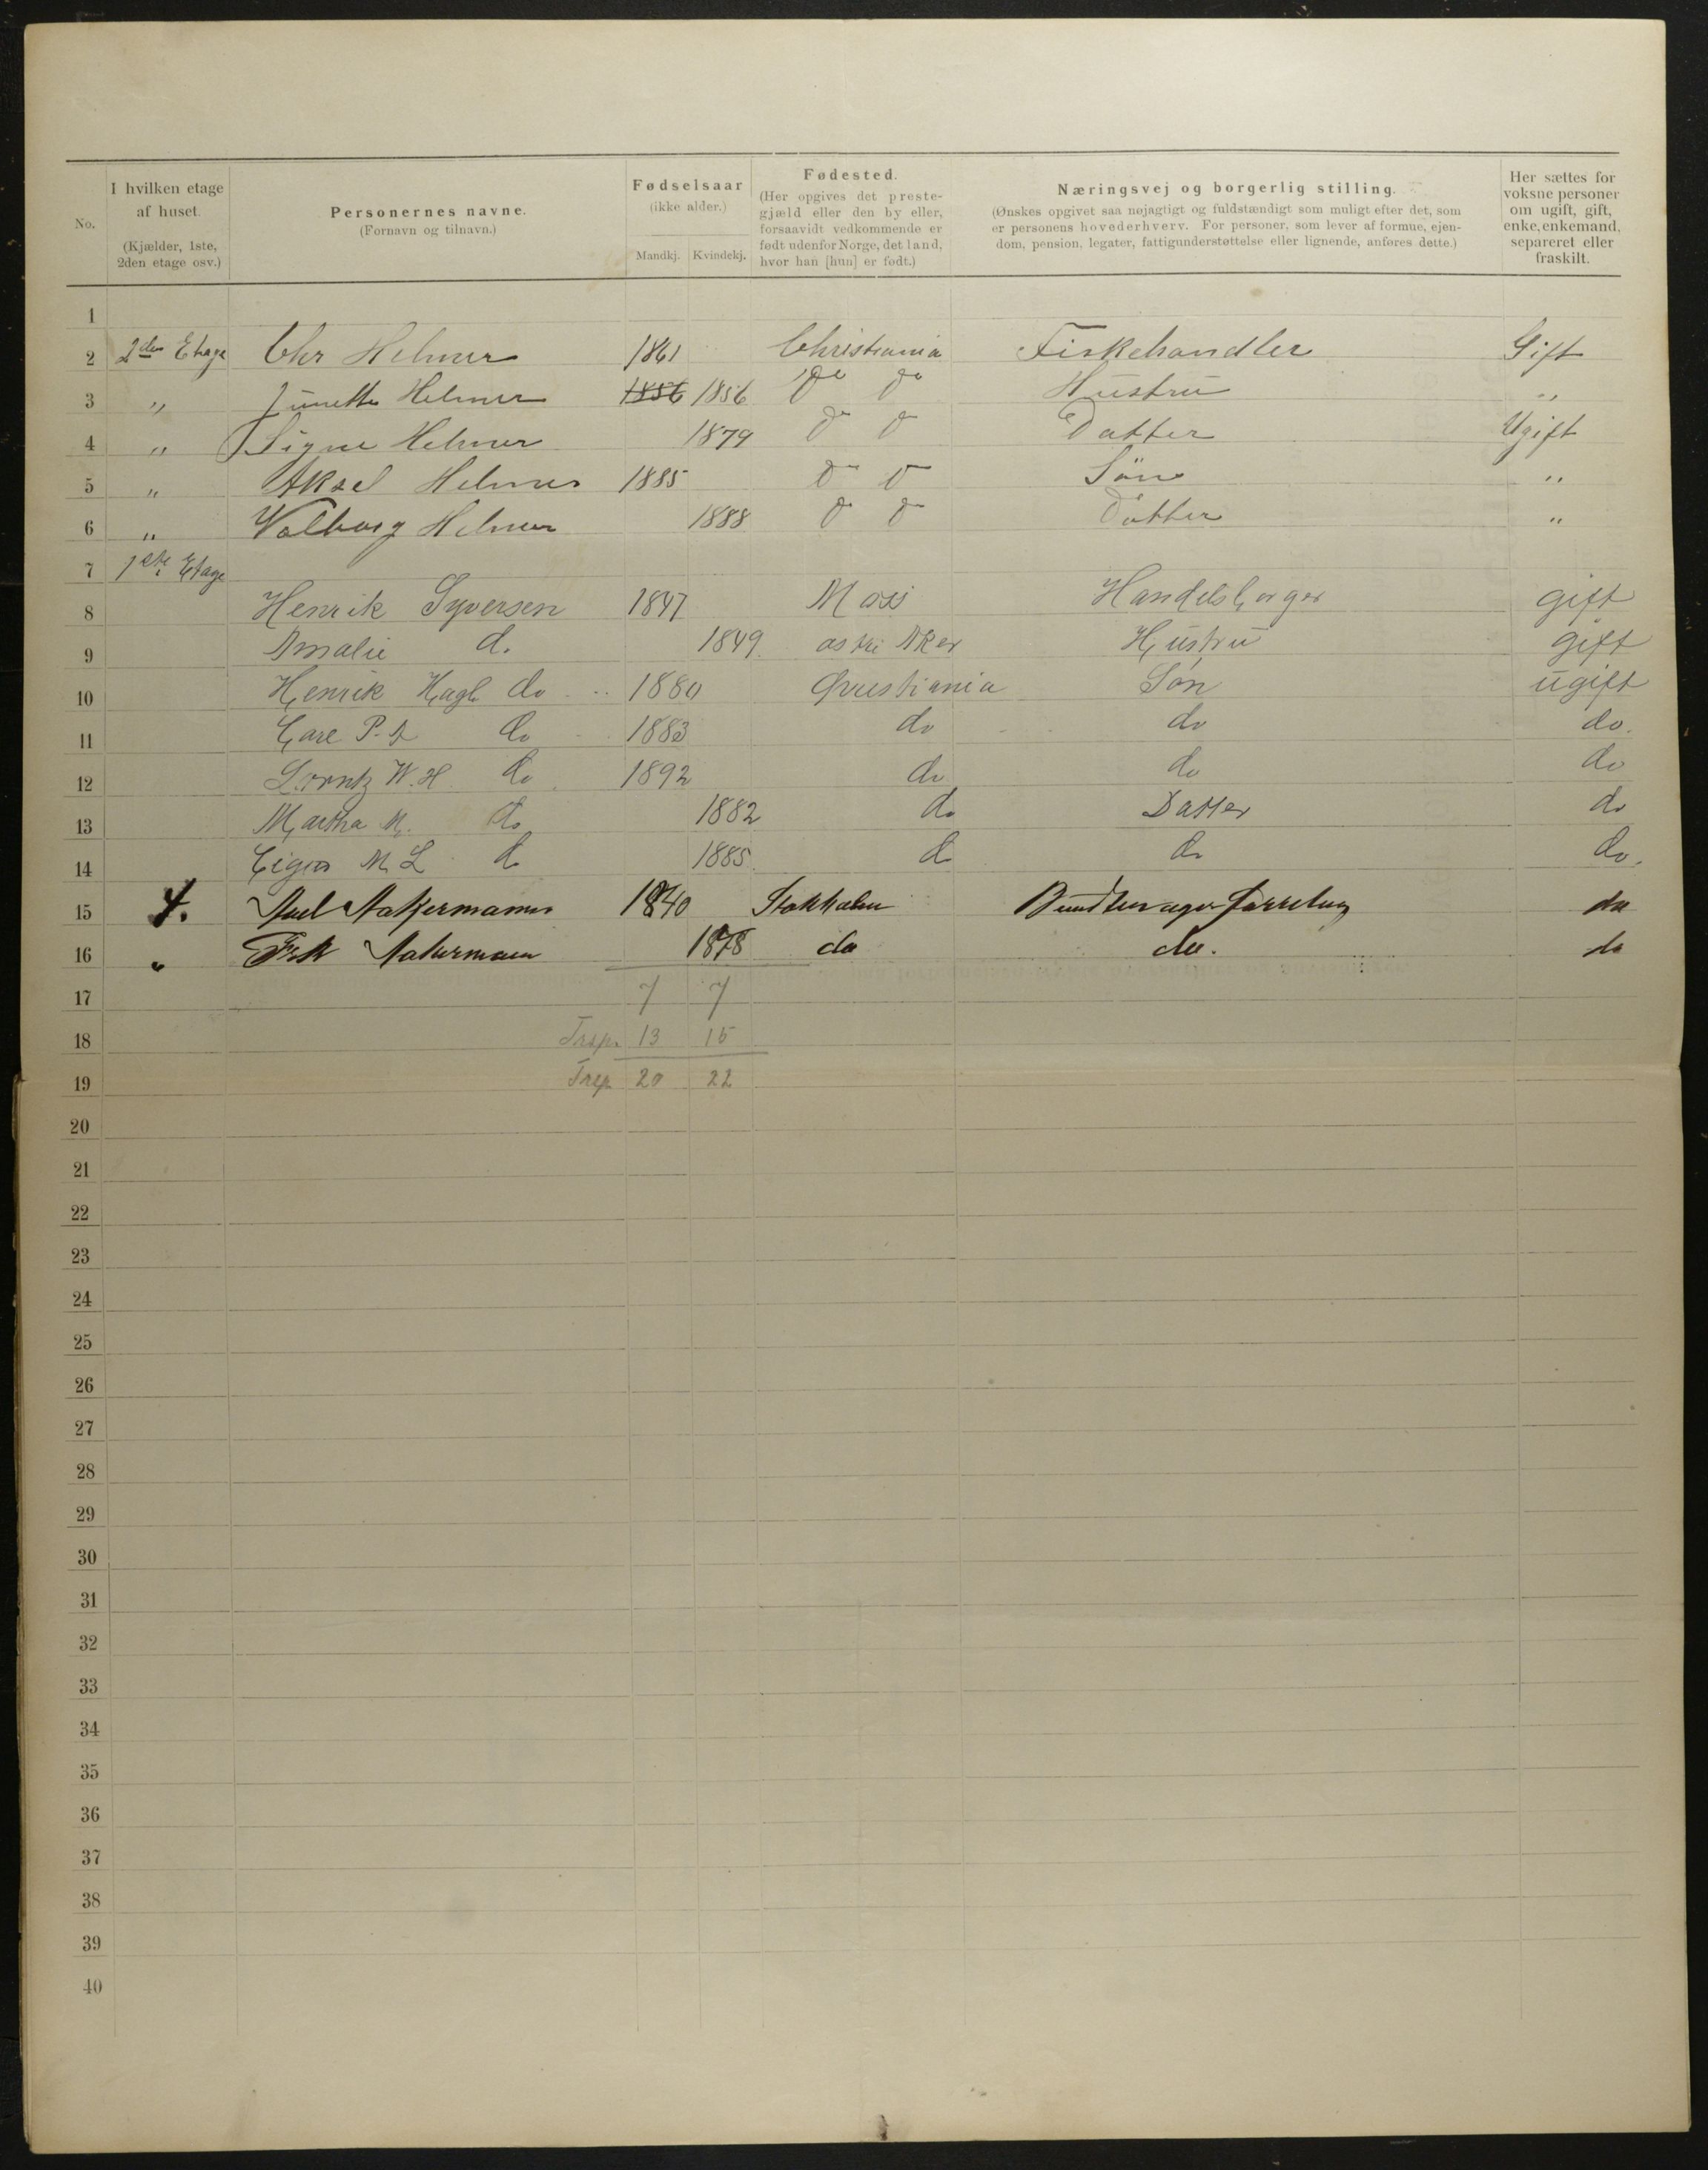 No. I hvilken etage af huset. (Kjælder, 1ste, 2den etage osv.) Personernes navne. (Fornavn og tilnavn.) Fødselsaar (ikke alder.) Mandkj. Kvindekj. Fødested. (Her opgives det prestegjæld eller den by eller, forsaavidt vedkommende er født udenfor Norge, det land, hvor han [hun] er født.) Næringsvej og borgerlig stilling. (Ønskes opgivet saa nøjagtigt og fuldstændigt som muligt efter det, som er personens hovederhverv. For personer, som lever af formue, ejendom, pension, legater, fattigunderstøttelse eller lignende, anføres dette.) Her sættes for voksne personer om ugift, gift, enke, enkemand, separeret eller fraskilt.
1
2 2den Etage Chr Helmer 1861 Christiania Fiskehandler Gift
3 " Helmer 1856 1856 Do Do Hustru "
4 " Signe Helmer 1879 Do Do Datter Ugift
5 " Aksel Helmer 1885 Do Do Søn "
6 " Valborg Helmer 1888 Do Do Datter "
7 1ste Etage
8 Henrik Syversen 1847 Moss Handelsborger gift
9 Amalie do. 1849 Aker Hustru gift
10 Henrik do 1880 Christiania Søn ugift
11 do 1883 do do do.
12 W. H. do 1892 do do do
13 Martha M. do 1882 do Datter do
14 M. L. do 1885 do do do.
15 4. 1840 Stokholm do
16 " 1878 do do. do
17 7 7
18 Trsp. 13 15
19 Trsp. 20 22
20
21
22
23
24
25
26
27
28
29
30
31
32
33
34
35
36
37
38
39
40